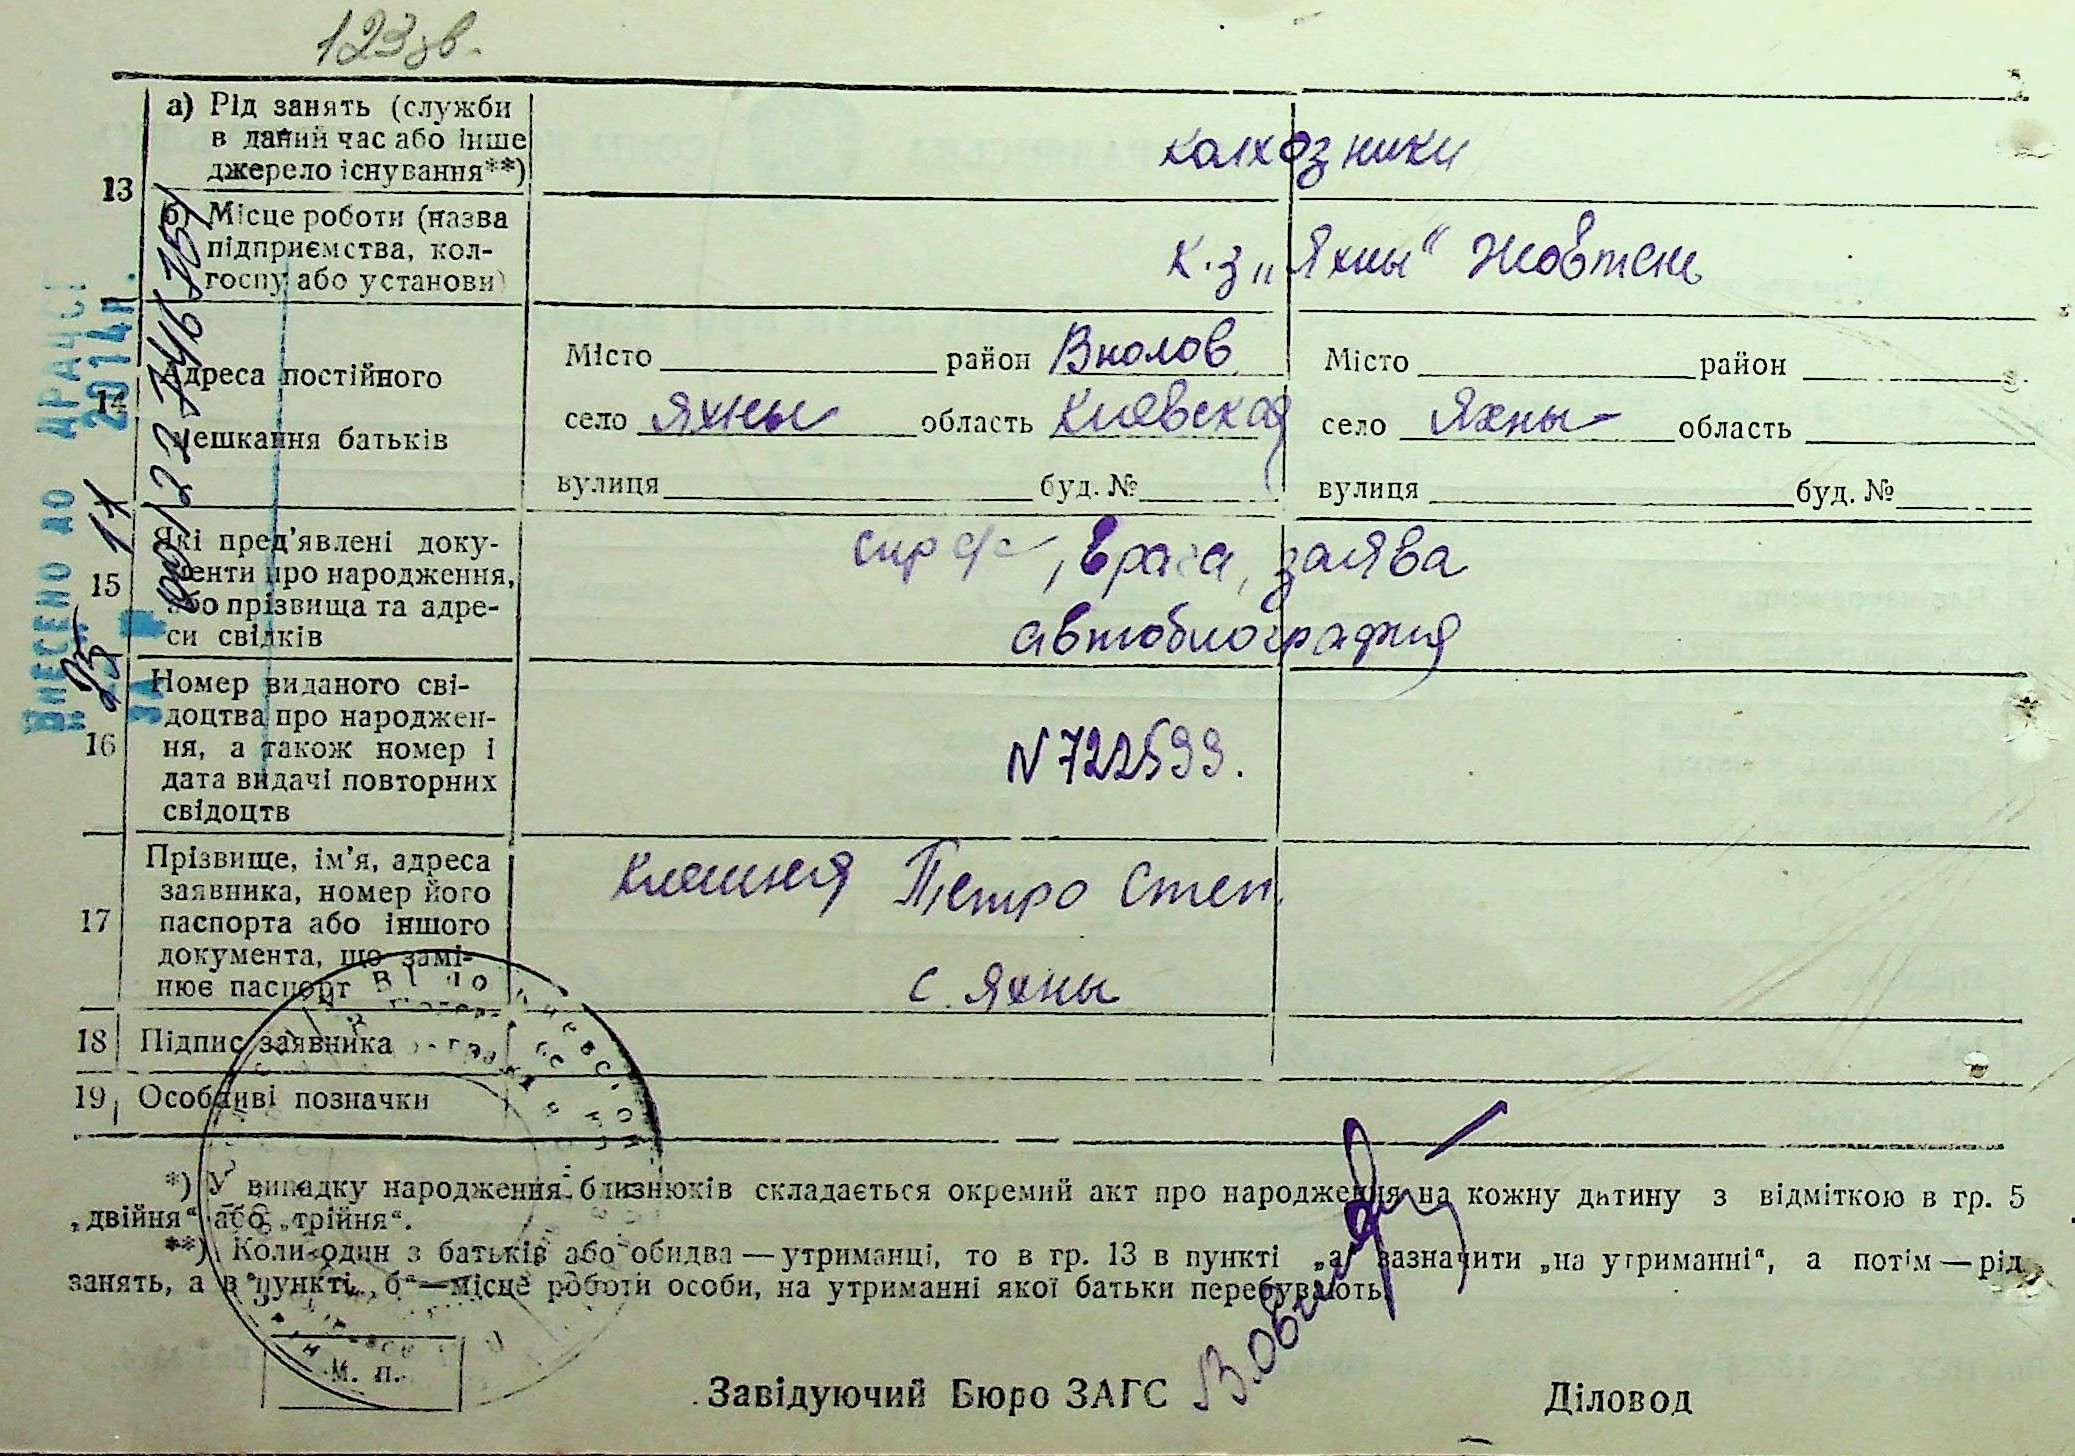 123 зв.
13
а) Рід занять (служби
в даний час або інше
джерело існування**)
колхозники
б) Місце роботи (назва
підприємства, кол-
госпу або установи)
к.з „Яхны“ Жовтень
14
Адреса постійного
мешкання батьків
Місто район
село Яхны область Киевская
вулиця буд. №
Місто район
село Яхны область
вулиця буд. №
15
Які пред’явлені доку-
менти про народження,
або прізвища та адре-
си свідків
спр с/с, врача, заява
автобиография
16
Номер виданого сві-
доцтва про народжен-
ня, а також номер і
дата видачі повторних
свідоцтв
N 722599.
17
Прізвище, ім’я, адреса
заявника, номер його
паспорта або іншого
документа, що замі-
нює паспорт
Петро Степ.
с. Яхны
18 Підпис заявника
19 Особливі позначки
*) У випадку народження близнюків складається окремий акт про народження на кожну дитину з відміткою в гр. 5
„двійня“ або „трійня“.
**) Коли один з батьків або обидва — утриманці, то в гр. 13 в пункті „а“ зазначити „на утриманні“, а потім — рід
занять, а в пункті „б“ — місце роботи особи, на утриманні якої батьки перебувають.
М. П.
Завідуючий Бюро ЗАГС
Діловод
ВНЕСЕНО ДО ДРАЦСГ
2014р.